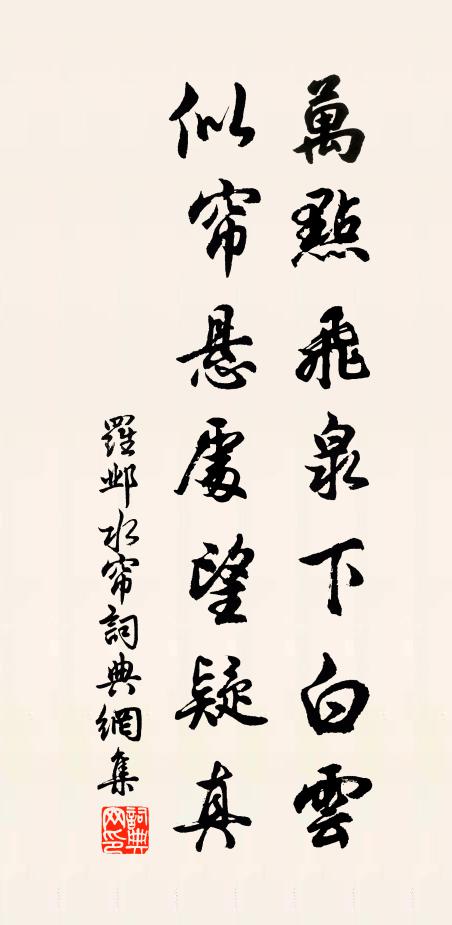 萬點飛泉下白雲
似帘悬處望疑真
羅鄴水帘詞典網集
詞典网印